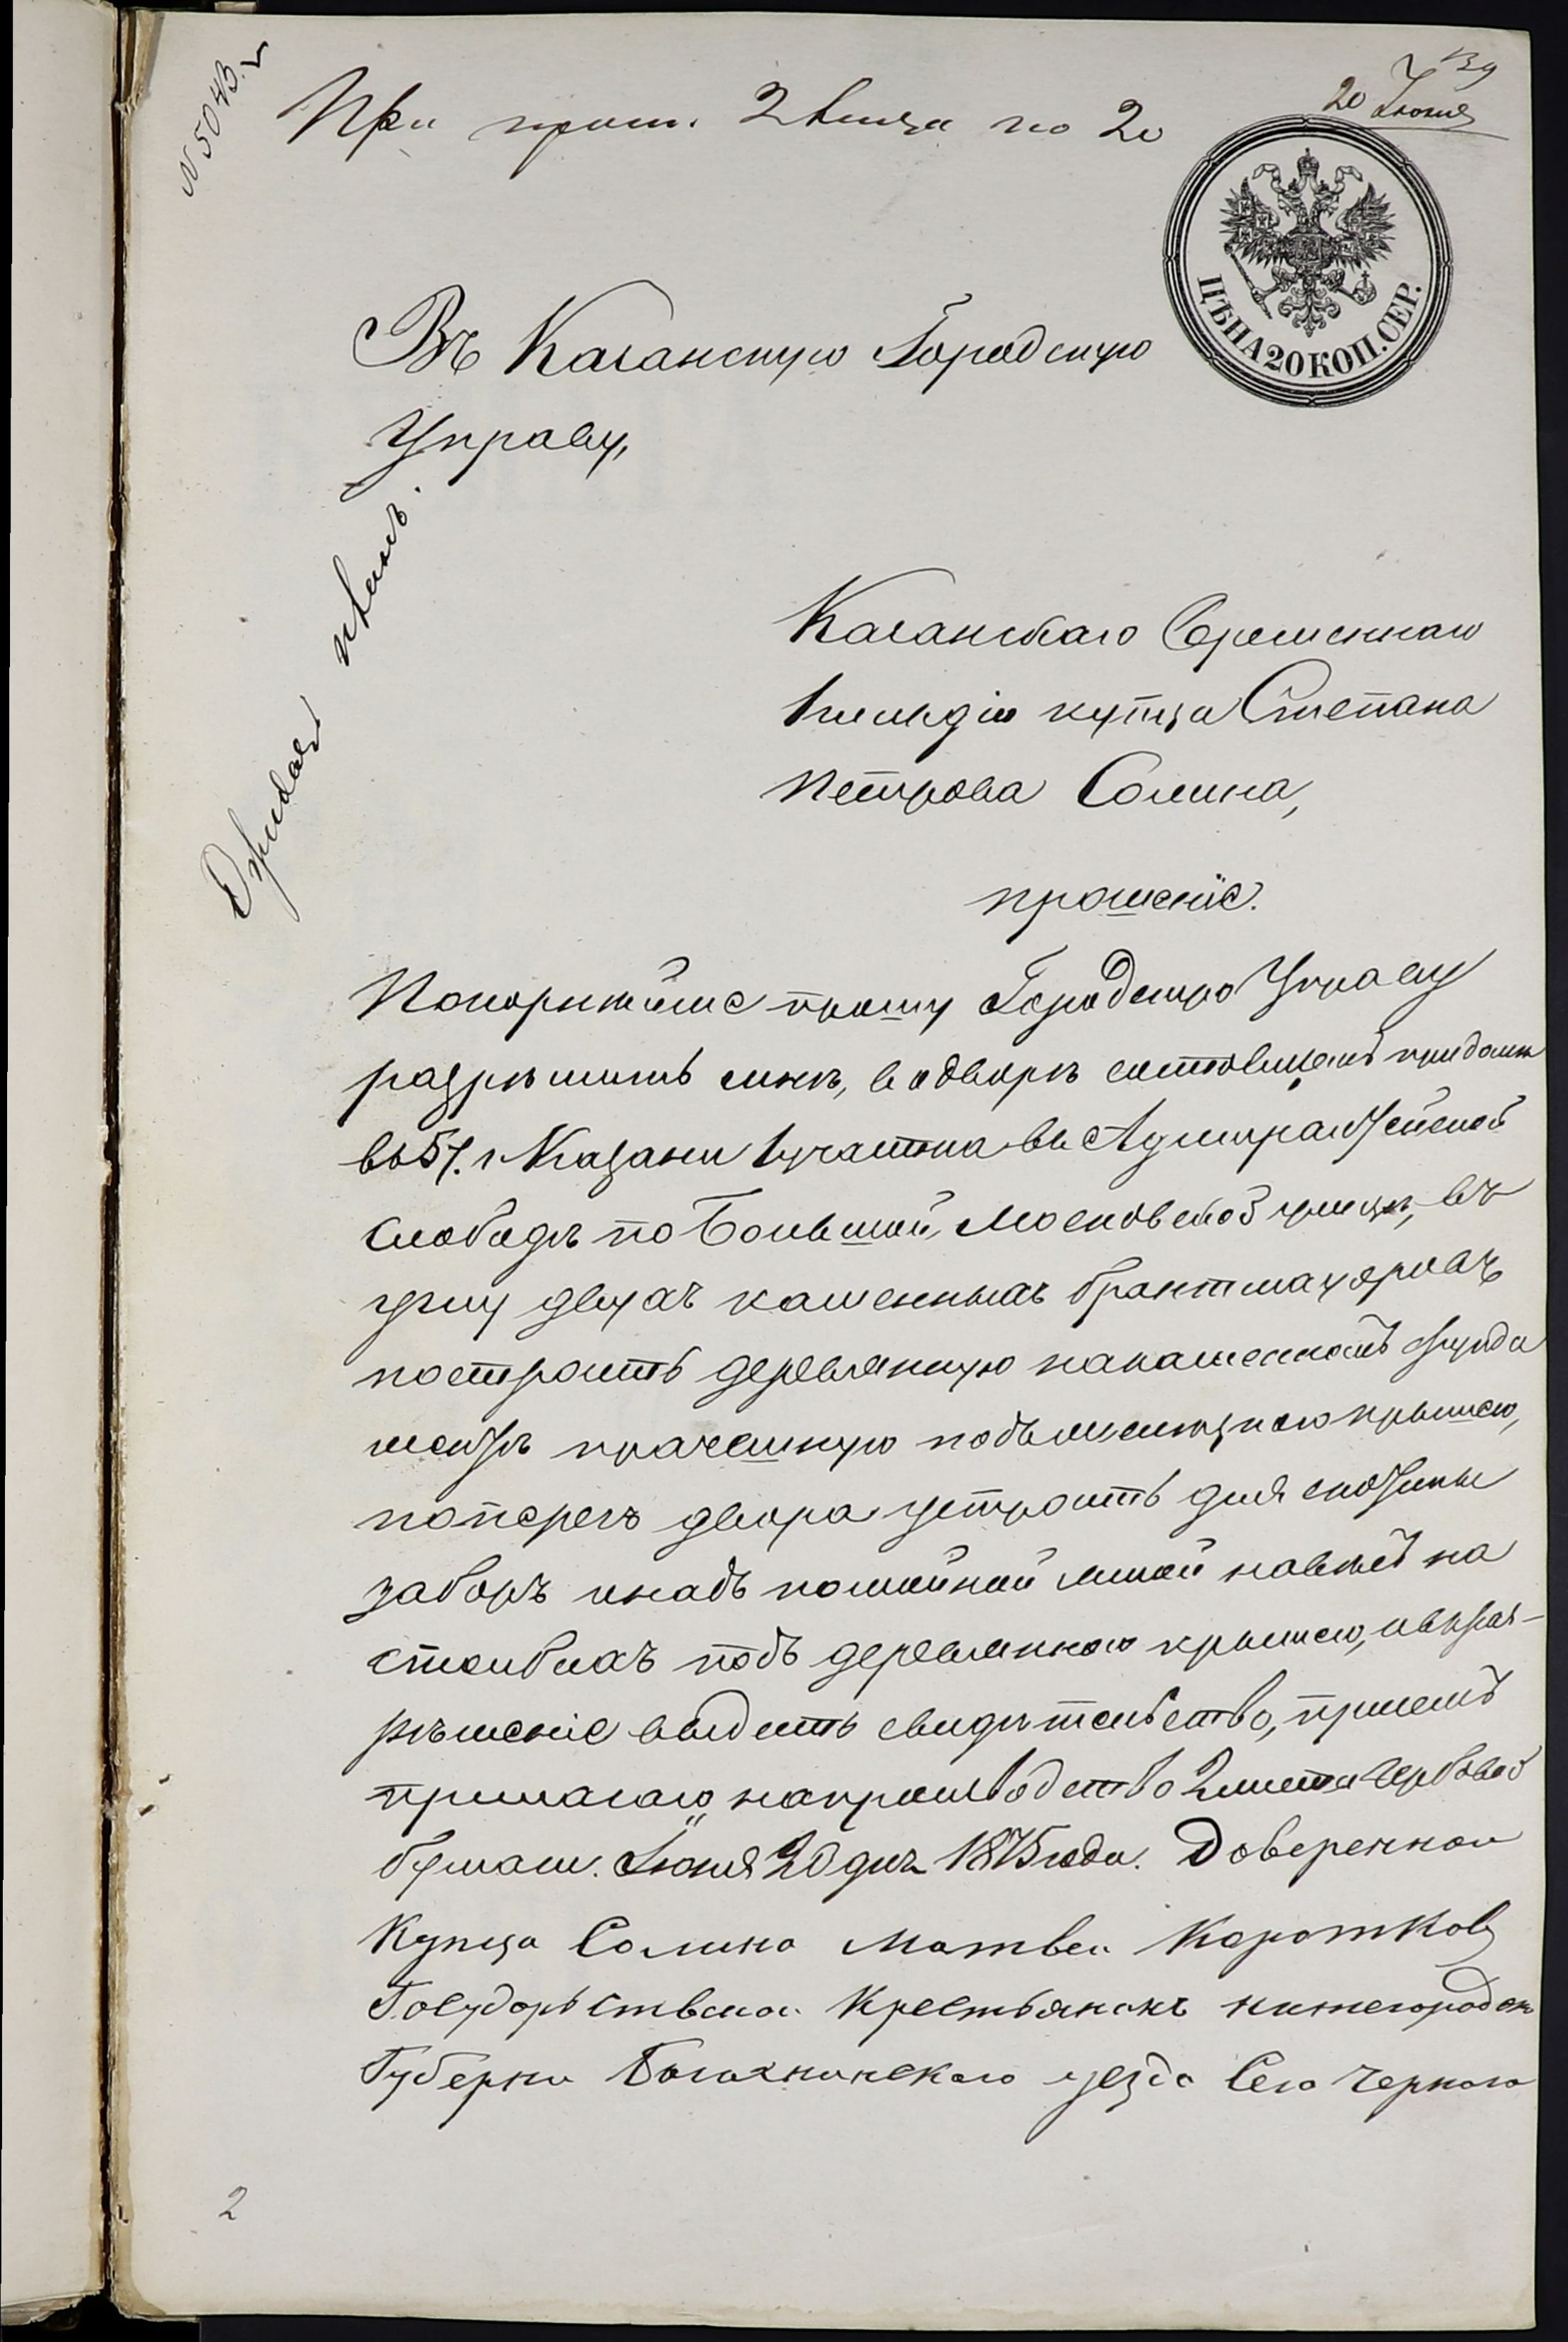 N 5043.
При прош. 2 листа по 20
20 Июня
ЦѢНА 20 КОП. СЕР.
Въ Казанскую Городскую
Управу,
Казанскаго Временнаго
1 гильдіи купца Степана
Петрова Сомина,
прошеніе.
Покорнѣйше прошу Городскую Управу
разрѣшить мнѣ, во дворѣ состоящемъ при домѣ
въ 5 ч. г. Казани 1 участка въ Адмиралтейской
слободѣ по Большой Московской улицѣ, въ
углу двухъ каменныхъ брантмауеровъ
построить деревянную на каменномъ фунда
ментѣ прачешную подъ желѣзною крышею,
поперегъ двора устроить для скотины
заборъ и надъ помойной ямой навѣсъ на
столбахъ подъ деревянною крышею, и въ раз-
рѣшеніе выдать свидѣтельство, при семъ
прилагаю на производство 2 листа гербовой
бумаги. Іюня 20 дня 1875 года. Довереннои
Купца Сомина Матвеи Коротковъ
Государьственои Крестьянинъ нижегородск
Губерни Балахнинскаго уезда Села Чернаго
2